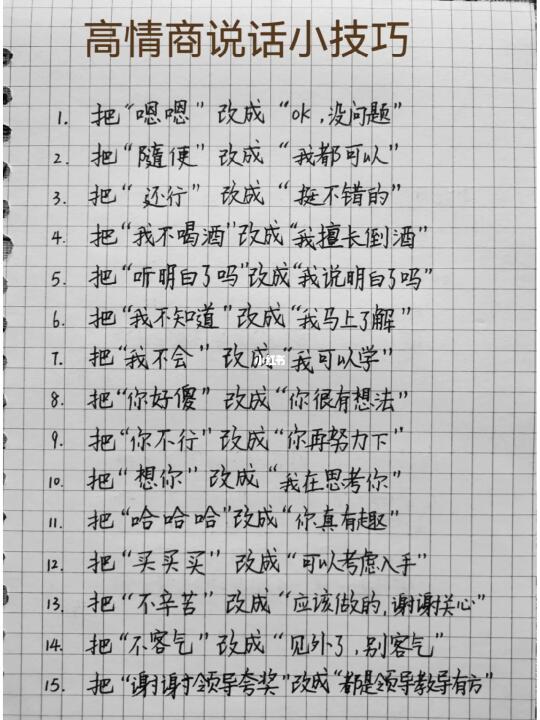 高情商说话小技巧
1. 把“嗯嗯”改成“OK,没问题”
2. 把“随便”改成“我都可以”
3. 把“还行”改成“挺不错的”
4. 把“我不喝酒”改成“我擅长倒酒”
5. 把“听明白了吗”改成“我说明白了吗”
6. 把“我不知道”改成“我马上了解”
7. 把“我不会”改成“我可以学”
小红书
8. 把“你好傻”改成“你很有想法”
9. 把“你不行”改成“你再努力下”
10. 把“想你”改成“我在思考你”
11. 把“哈哈哈”改成“你真有趣”
12. 把“买买买”改成“可以考虑入手”
13. 把“不辛苦”改成“应该做的,谢谢关心”
14. 把“不客气”改成“见外了,别客气”
15. 把“谢谢领导夸奖”改成“都是领导教导有方”